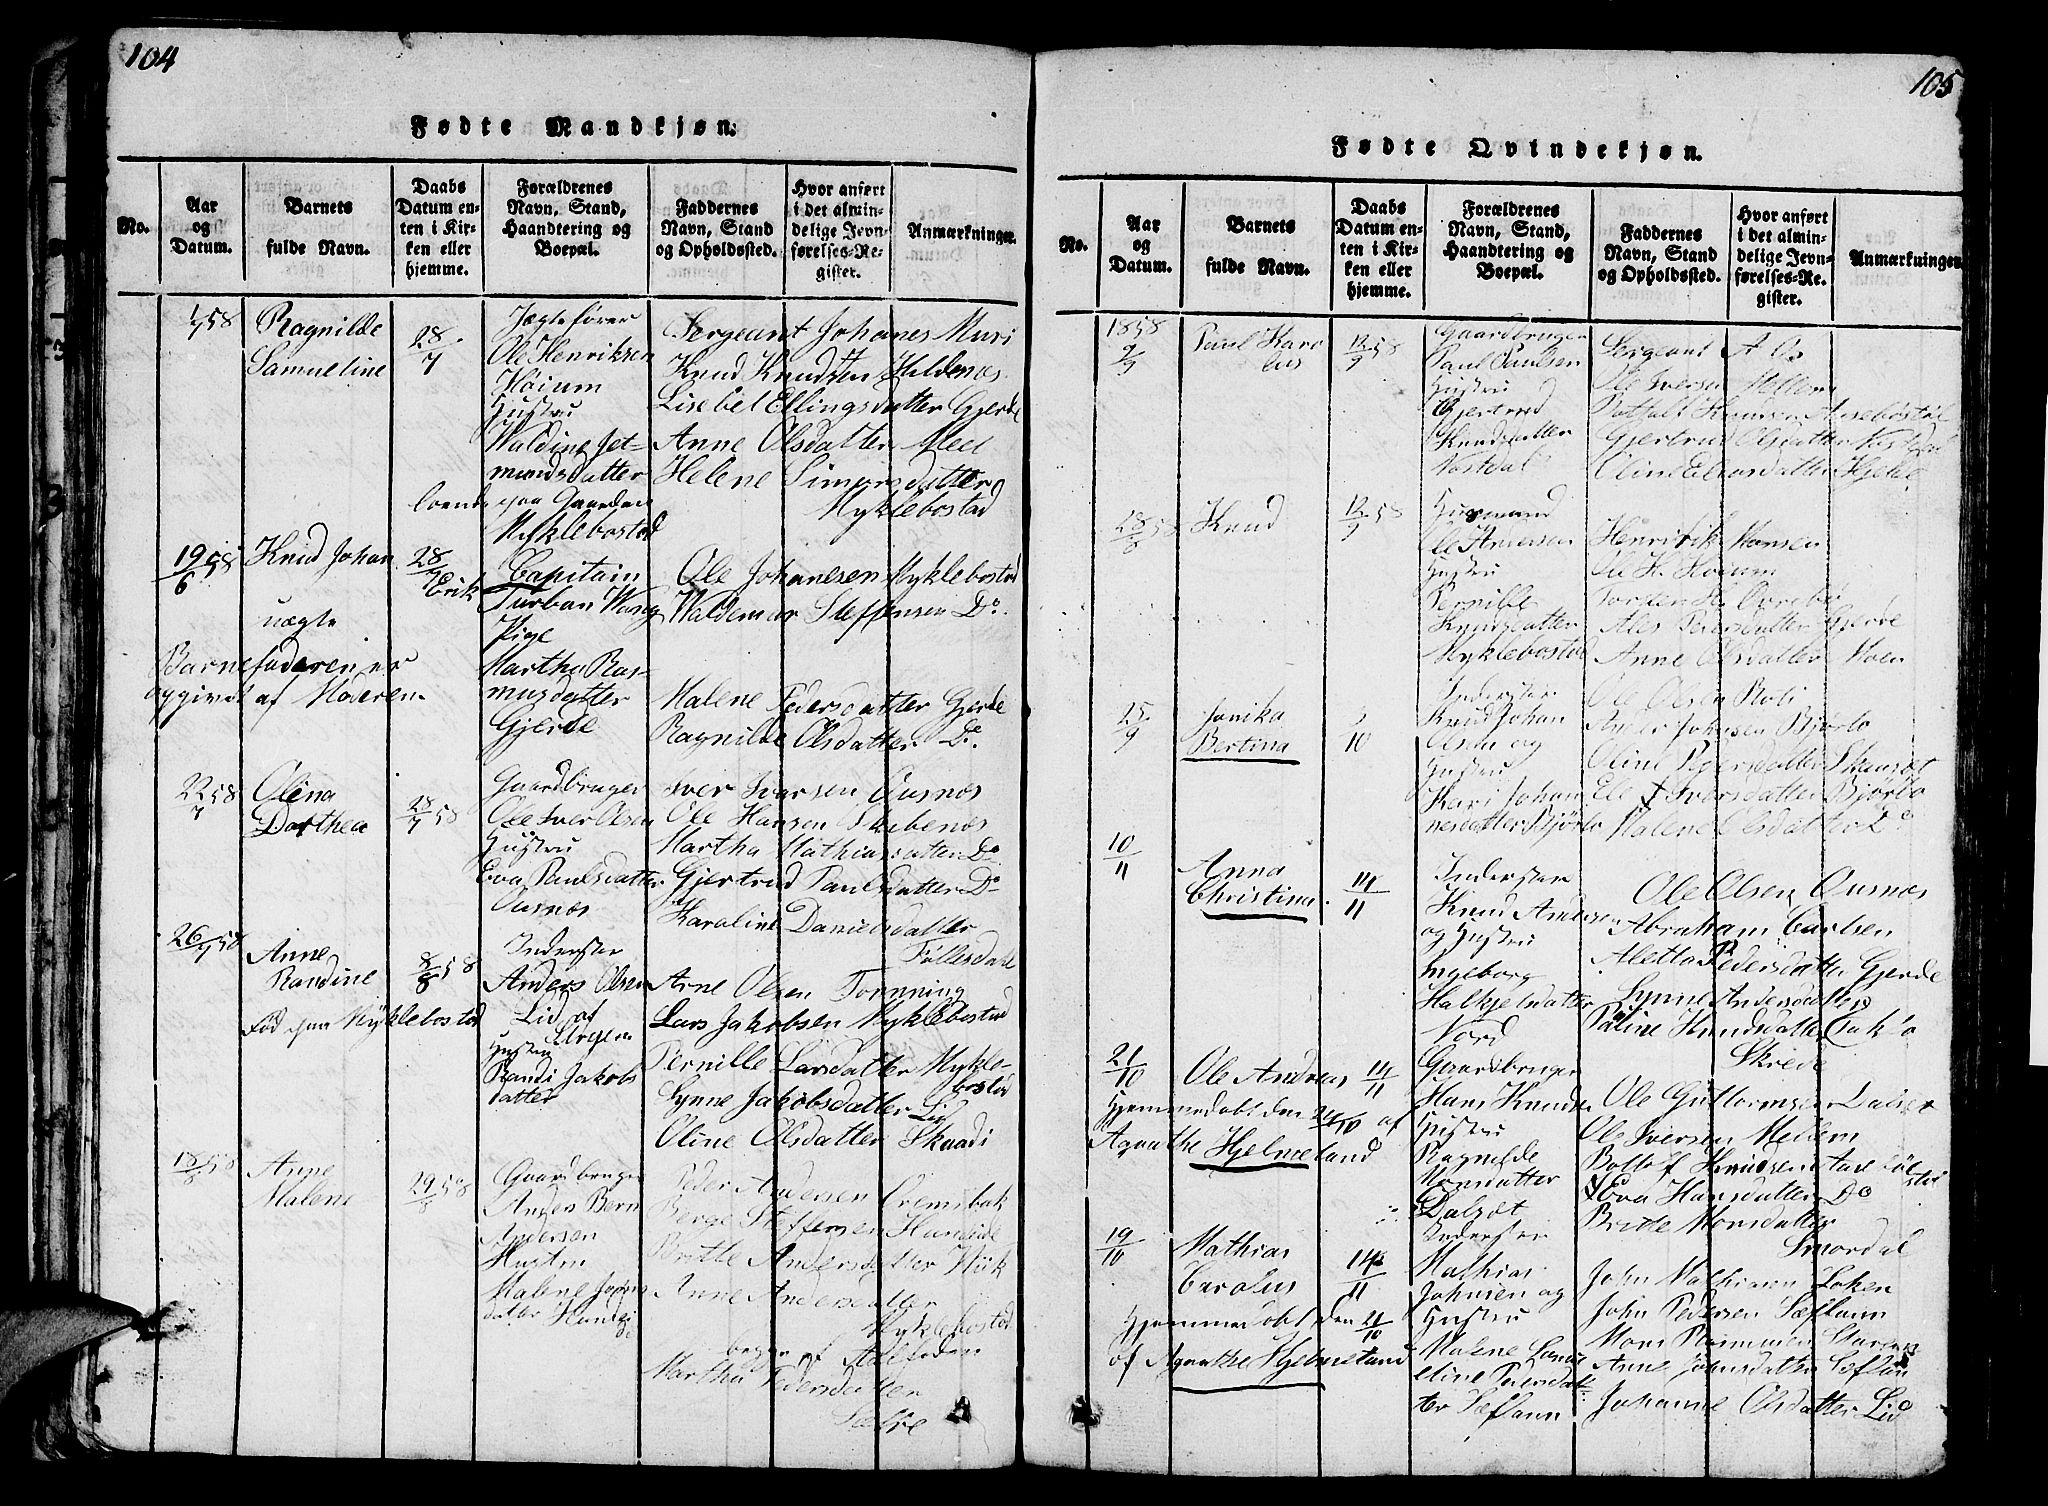 104
Fødte Mandkjøn.
No.
Aar
og
Datum.
Barnets
fulde Navn.
Daabs
Datum en-
ten i Kir-
ken eller
hjemme.
Forældrenes
Navn, Stand,
Haandtering og
Boepæl.
Faddernes
Navn, Stand
og Opholdssted.
Hvor anført
i det almin-
delige Jevn-
førelses-Re-
gister.
Anmærkninger.
1/7 58
Ragnilde
Samueline
28/7
Jægtefører
Ole Henriksen
Høium
Hustru
Waldine Jet-
mundsdatter
loende paa Gaarden
Myklebostad
Sergeant Johanes Muri
Knud Knudsen Heldenæs
Lisebet Ellingsdatter Gjerde
Anne Olsdatter Meel
Helene Simonsdatter
Myklebostad
19/6 58
Knud Johan
Erik
uægte
28/7
Barnefaderen er
opgivet af Moderen
Capitain
Turban Wang
Pige
Martha Ras-
musdatter
Gjerde
Ole Johanesen Myklebostad
Waldemar Steffensen Do.
Malene Pedersdatter Gjerde
Ragnilde Olsdatter Do.
22/7 58
Olina
Dorthea
28/7 58
Gaardbruger
Ole Iver Olsen
Hustru
Eva Paulsdatter
Ousnæs
Iver Ivarsen Ousnæs
Ole Hansen
Martha Mathiasdatter Do
Gjertrud Paulsdatter Do
Karoline Danielsdatter
Føllesdale
26/7 58
Anne
Randine
Fød paa Myklebostad
8/8 58
Inderster
Anders Olsen
Lid af
Hustru
Randi Jakobs
datter
Arne Olsen Tonning
Lars Jakobsen Myklebostad
Pernille Larsdatter Mykle-
bostad
Synne Jakobsdatter Lid
Oline Olsdatter Skaadi
18/8 58
Anne
Malene
29/8 58
Gaardbruger
Anders Bern
Andersen
Hustru
Malene
datter
Peder Andersen
Berge Steffensen
Britte Andersdatter
Anne Andersdatter
Myklebostad
begge af
Martha Pedersdatter
Sætre
105
Fødte Qvindekjøn.
No.
Aar
og
Datum.
Barnets
fulde Navn.
Daabs
Datum en-
ten i Kir-
ken eller
hjemme.
Forældrenes
Navn, Stand,
Haandtering og
Boepæl.
Faddernes
Navn, Stand
og Opholdssted.
Hvor anført
i det almin-
delige Jevn-
førelses-Re-
gister.
Anmærkninger.
1858
9/9
Paul Karo
lus
12/9 58
Gaardbruger
Paul Paulsen
Hustru
Gjertrud
Knudsdatter
Vostdal
Sergeant A Os
Ole Iversen Mellem
Gjertrud Olsdatter
Oline
28/8 58
Knud
12/9 58
Husmand
Ole Andersen
Hustru
Pernille
Knudsdatter
Myklebostad
Henrik Monsen
Ole H. Høium
Torsten H.
Ales Pedersdatter Gjerde
Anne Olsdatter Moen
25/9
Jonika
Bertina
3/10
Inderster
Knud Johan
Olsen og
Hustru
Kari Johan
nesdatter Bjørlo
Ole Olsen Roti
Ander Johnsen Bjørlo
Oline Pedersdatter Skausæt
Ele Iversdatter Bjørlo
Malene Olsdatter Do
10/11
Anna
Christina
14/11
Inderster
Knud Andersen
og Hustru
Ingeborg
Halkjelsdatter
Nord
Ole Olsen Ousnæs
Abraham Carlsen
Aletta Pedersdatter Gjerde
Synne Andersdatter
Paline Knudsdatter
Skrede
21/10
Ole Andreas
14/11
Hjemmedøbt den 24/10 af
Agnathe Hjelmeland
Gaardbruger
Hans Knudsen
Hustru
Ragnilde
Monsdatter
Dalsæt
Ole Guttormsen Dalsæt
Ole Iversen Mellem
Bottolf Knudsen Aasebøl
støl
Eva Hansdatter Do
Brite Monsdatter
Smordal
19/10
Mathias
Carolus
14/11
Hjemmedøbt den 21/10
af Agnathe Hjelmeland
Inderster
Mathias
Johnsen og
Hustru
Malene
eline Pedersdat-
ter Sæflann
John Mathiasen Loken
John Pedersen Sæflann
Mons Rasmusen
Anne Johnsdatter Sæflan
Johanne Olsdatter Lid